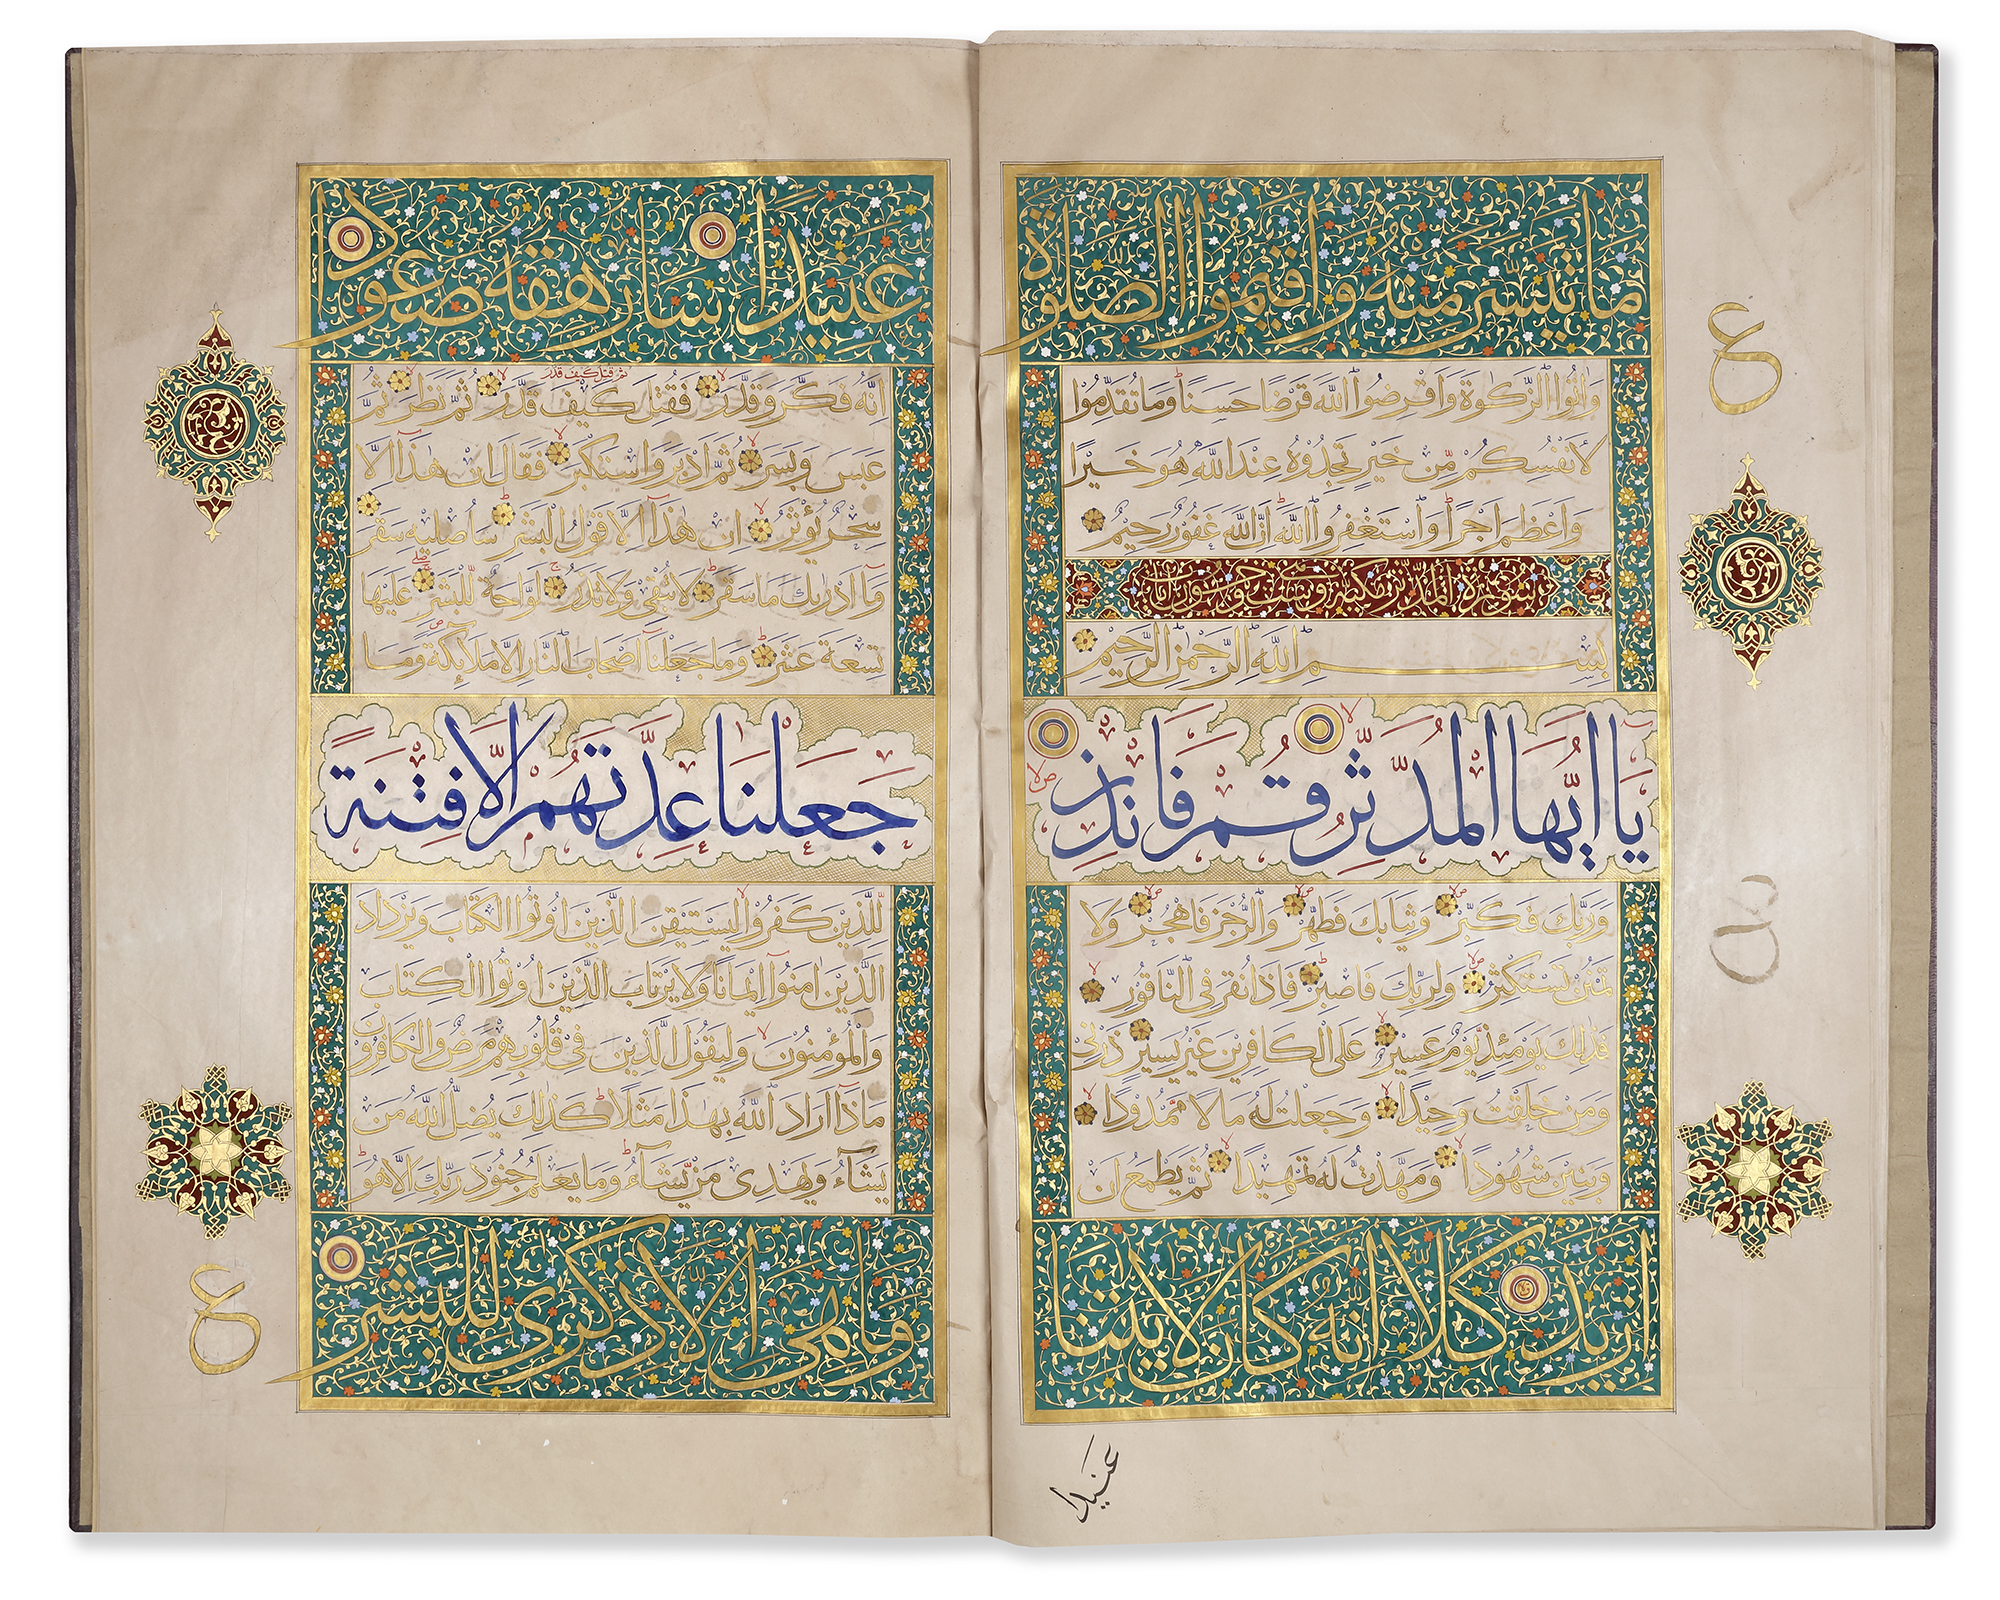 ما تيسر منه واقيموا الصلوة
واتوا الزكوة واقرضوا الله قرضا حسنا وما تقدموا
لانفسكم من خير تجدوه عند الله هو خيرا
واعظم اجرا واستغفروا الله ان الله غفور رحيم
سورة المدثر مكية وهي ست وخمسون اية
بسم الله الرحمن الرحيم
يا ايها المدثر قم فانذر
وربك فكبر وثيابك فطهر والرجز فاهجر ولا
تمنن تستكثر ولربك فاصبر فاذا نقر في الناقور
فذلك يومئذ يوم عسير على الكافرين غير يسير ذرني
ومن خلقت وحيدا وجعلت له مالا ممدودا
وبنين شهودا ومهدت له تمهيدا ثم يطمع ان
ازيد كلا انه كان لاياتنا
عنيدا
عنيدا سارهقه صعودا
ثم قتل كيف قدر
انه فكر وقدر فقتل كيف قدر ثم نظر ثم
عبس وبسر ثم ادبر واستكبر فقال ان هذا الا
سحر يؤثر ان هذا الا قول البشر ساصليه سقر
وما ادريك ما سقر لا تبقي ولا تذر لواحة للبشر عليها
تسعة عشر وما جعلنا اصحاب النار الا ملائكة وما
جعلنا عدتهم الا فتنة
للذين كفروا ليستيقن الذين اوتوا الكتاب ويزداد
الذين امنوا ايمانا ولا يرتاب الذين اوتوا الكتاب
والمؤمنون وليقول الذين في قلوبهم مرض والكافرون
ماذا اراد الله بهذا مثلا كذلك يضل الله من
يشاء ويهدي من يشاء وما يعلم جنود ربك الا هو
وما هي الا ذكرى للبشر